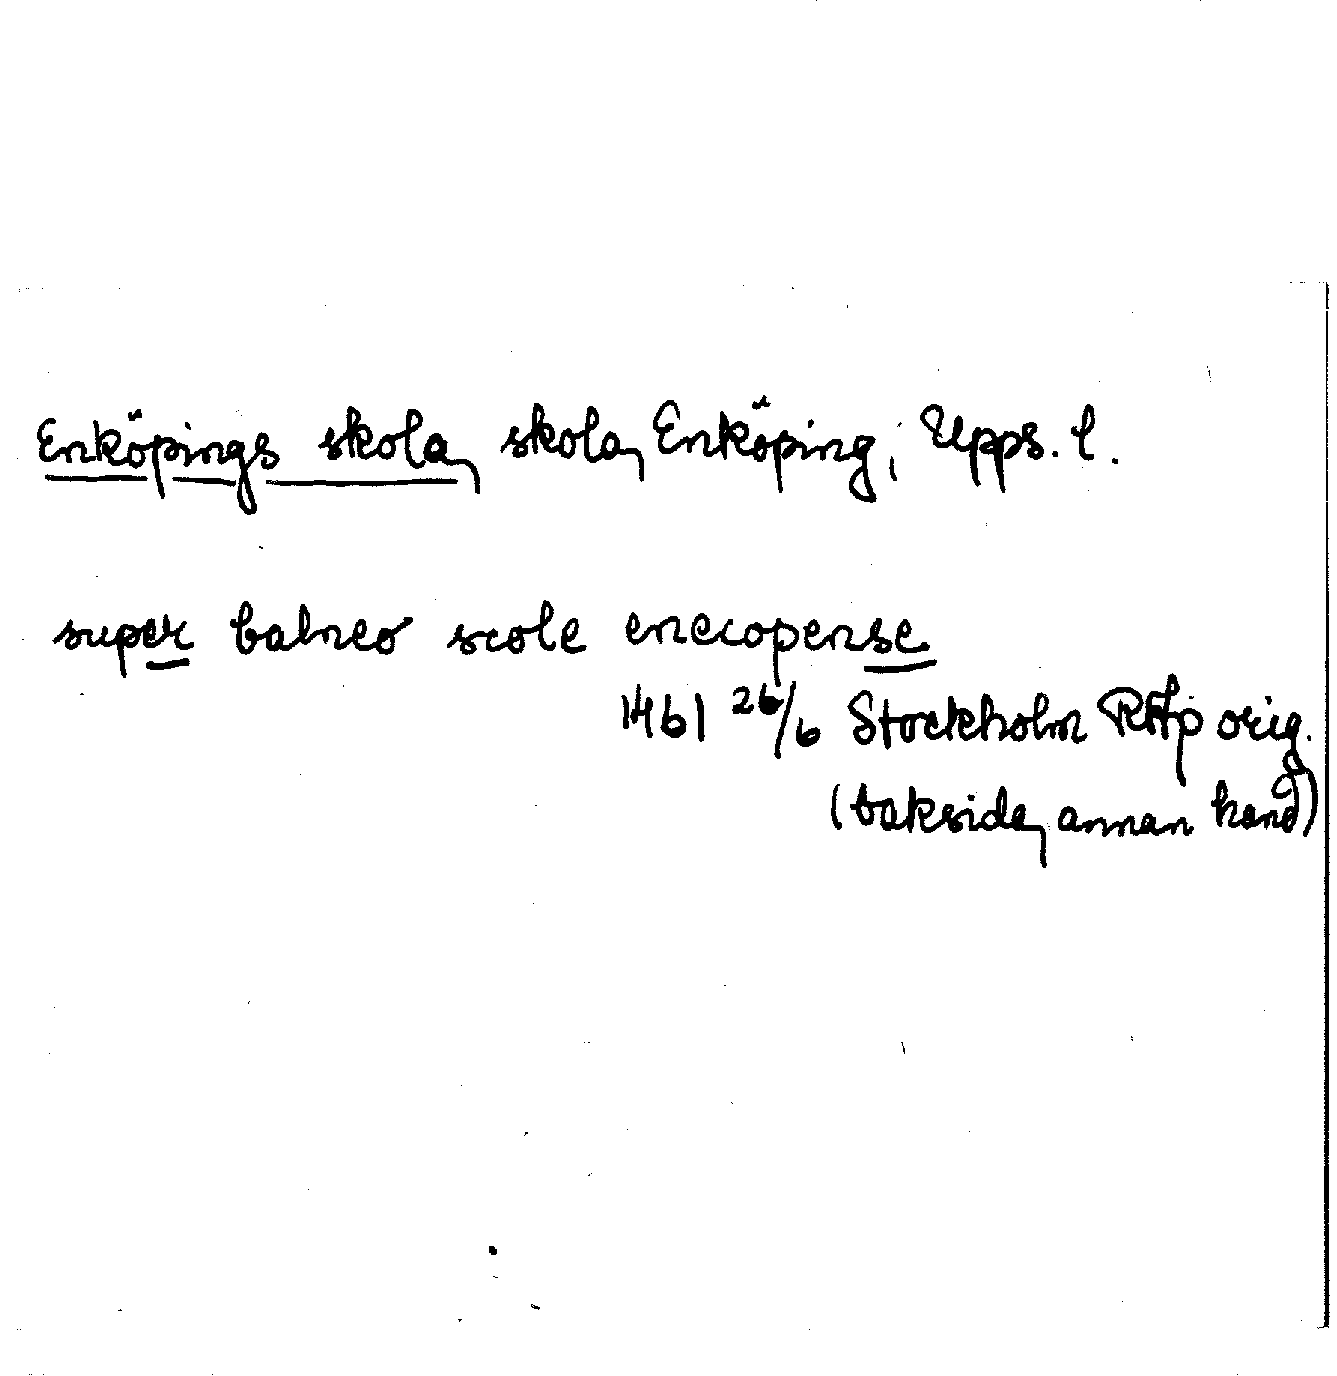 Enköpings skola, skola, Enköping, Upps. l.
super balneo scole enecopense
1461 26/6 Stockholm RAp orig.
(baksida, annan hand)